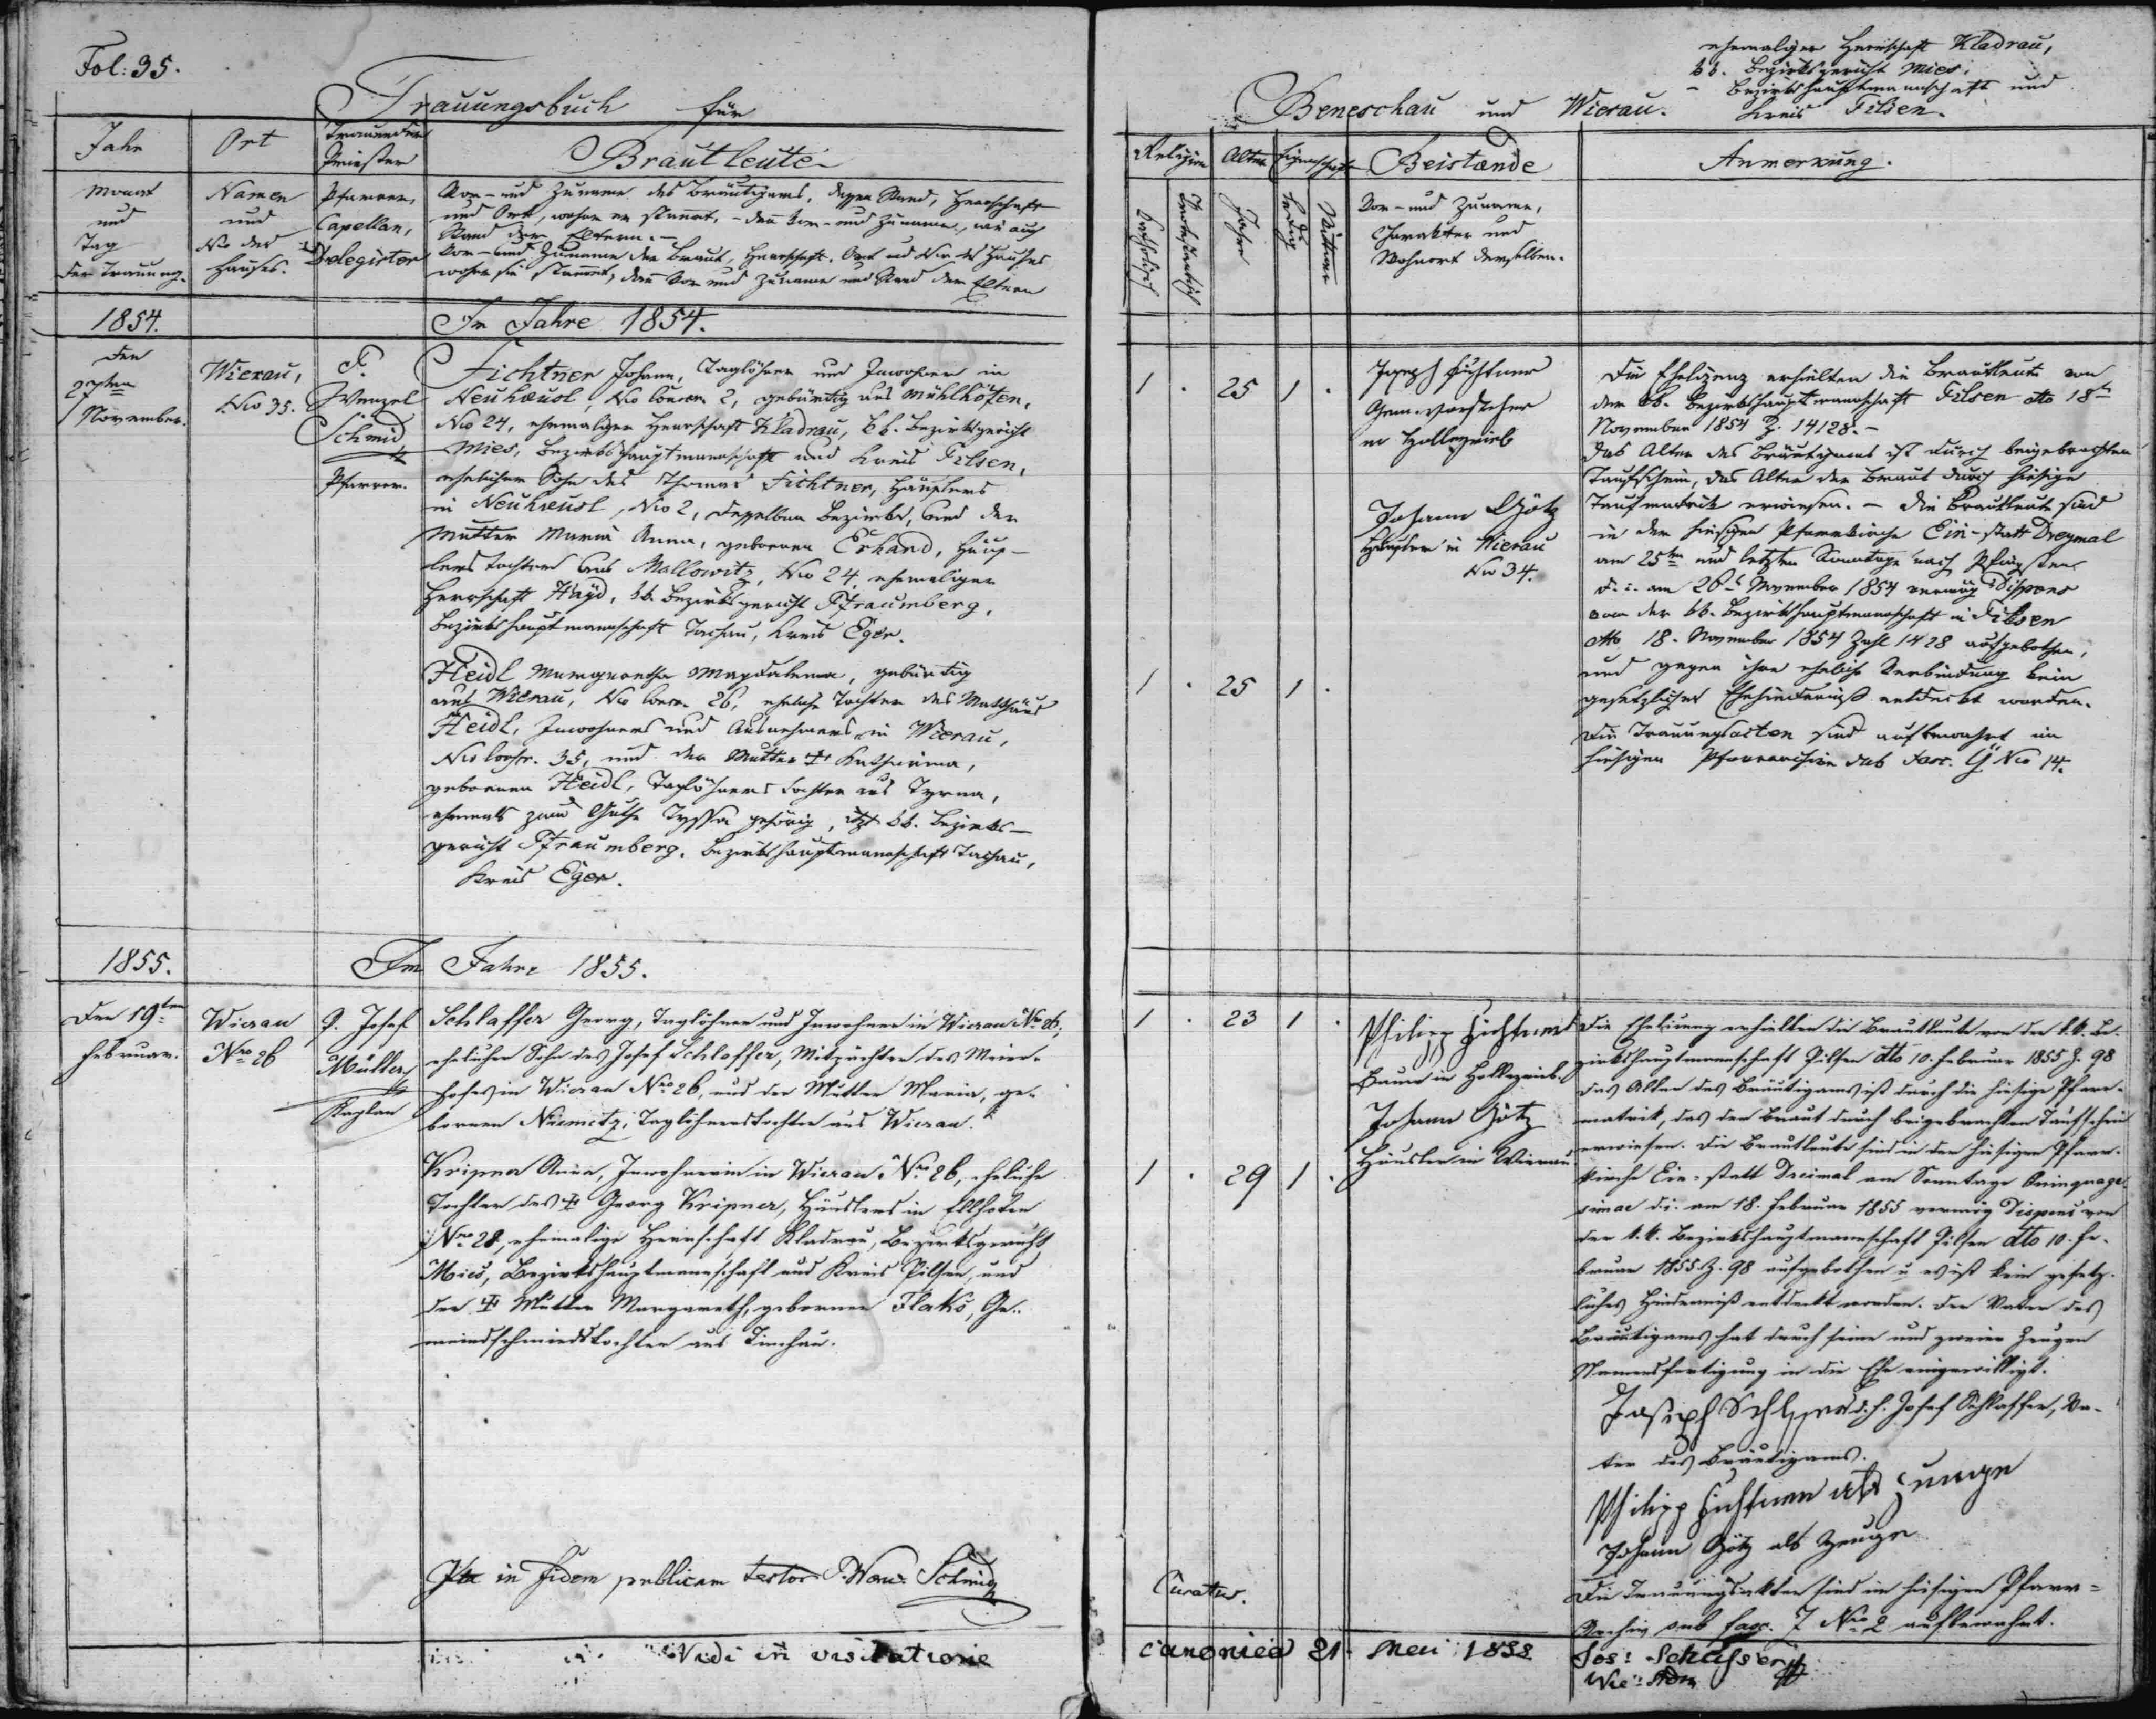 Fol: 35.
Trauungsbuch für
Jahr
Ort
Trauender
Priester
Brautleute
Monat
und
Tag
der Trauung.
Namen
und
No des
Hauses.
Pfarrer,
Capellan,
Delegirter
Vor- und Zuname des Bräutigams, dessen Stand, Herrschaft
und Ort, woher er stammt, - dann Vor- und Zuname, wie auch
Stand der Eltern. -
Vor- und Zuname der Braut, Herrschaft, Ort und Nro des Hauses
woher sie stammt, dann Vor und Zuname und Stand der Eltern
1854.
Im Jahre 1854.
Den
27sten
November.
Wierau,
Nro 35.
P.
Wenzel
Schmid
Pfarrer.
Fichtner Johann, Taglöhner und Inwohner in
Neuhäusl, Nro Conscr. 2, gebürtig aus Mühlhöfen,
Nro 24, ehemaliger Herrschaft Kladrau, kk. Bezirksgericht
Mies, Bezirkshauptmannschaft und Kreis Pilsen,
ehelicher Sohn des Thomas Fichtner, Häuslers
in Neuhäusl, Nro 2, desselben Bezirks, und der
Mutter Maria Anna, geborenen Erhand, Häus-
lers Tochter aus Mallowitz, Nro 24, ehemaliger
Herrschaft Hayd, kk. Bezirksgericht Pfraumberg,
Bezirkshauptmannschaft Tachau, Kreis Eger.
Heidl Margaretha Magdalena, gebürtig
aus Wierau, Nro Conscr. 26, eheliche Tochter des Matthäus
Heidl, Inwohners und Ausnehmers in Wierau,
Nro Conscr. 35, und der Mutter † Katharina,
geborenen Heidl, Taglöhners Tochter aus Tyrna,
ehemals zum Guthe Tyssa gehörig, itzt kk. Bezirks-
gericht Pfraumberg, Bezirkshauptmannschaft Tachau,
Kreis Eger.
1855.
Im Jahre 1855.
Den 19ten
Februar.
Wierau
Nro 26
P. Josef
Müller
Kaplan
Schlaffer Georg, Taglöhner und Inwohner in Wierau Nro 26,
ehelicher Sohn des Josef Schlaffer, Mitpächter des Meier-
hofes in Wierau Nro 26, und der Mutter Maria, ge-
bornen Niemetz, Taglöhnerstochter aus Wierau.
Kripner Anna, Inwohnerin in Wierau Nro 26, eheliche
Tochter des † Georg Kripner, Häuslers in Ellhoten
Nro 28, ehemalige Herrschaft Kladrau, Bezirksgericht
Mies, Bezirkshauptmannschaft und Kreis Pilsen, und
der † Mutter Margareth, gebornen Flaks, Ge-
meindschmiedstochter aus Tinchau.
in fidem publicam testor P. Wenc. Schmid
Vidi in visitatione
ehemaliger Herrschaft Kladrau,
kk. Bezirksgericht Mies,
- Bezirkshauptmannschaft und
Kreis Pilsen.
Beneschau und Wierau.
Religion
Alter
Eigenschaft
Beistände
Anmerkung.
Katholisch
Protestantisch
Jahre
Ledig
Wittwer
Vor- und Zuname,
Charakter und
Wohnort derselben.
1 . 25 1 .
Joseph Fichtner
Gem. vorsteher
in Hollezrieb
Johann Götz
Häusler in Wierau
Nro 34.
1 . 25 1 .
Die Ehelizenz erhielten die Brautleute von
der kk. Bezirkshauptmannschaft Pilsen dto 18ten
November 1854 Z. 14128. -
Das Alter des Bräutigams ist durch beigebrachten
Taufschein, das Alter der Braut durch hiesige
Taufmatrik erwiesen. - Die Brautleute sind
in der hiesigen Pfarrkirche Ein- statt Dreymal
am 25ten und letzten Sonntage nach Pfingsten
d. i. am 26t November 1854 vermög Dispens
von der kk. Bezirkshauptmannschaft in Pilsen
dto 18. November 1854 Zahl 1428 aufgebothen,
und gegen ihre eheliche Verbindung kein
gesetzliches Ehehinderniß entdeckt worden.
Die Trauungsacten sind aufbewahrt im
hiesigen Pfarrarchive sub Fasc. G Nro 14.
1 . 23 1 .
Philipp Fichtner
Bauer in Hollezrieb.
Johann Götz
Häusler in Wierau
1 . 29 1 .
Die Ehelizenz erhielten die Brautleute von der k.k. Be-
zirkshauptmannschaft Pilsen dto 10. Februar 1855 Z. 98
das Alter des Bräutigams ist durch die hiesige Pfarr-
matrik, das der Braut durch beigebrachten Taufschein
erwiesen. Die Brautleute sind in der hiesigen Pfarr-
kirche Ein- statt Dreimal am Sonntage Quinquage-
simae di. am 18. Februar 1855 vermög Dispens von
der k.k. Bezirkshauptmannschaft Pilsen dto 10. Fe-
bruar 1855 Z. 98 aufgebothen u. es ist kein gesetz-
liches Hinderniß entdeckt worden. Der Vater des
Bräutigams hat durch seine und zweier Zeugen
Namensfertigung in die Ehe eingewilligt.
Joseph d. h. Josef Schlaffer, Va-
ter des Bräutigams.
Philipp Fichtner als Zeuge
Johann Götz als Zeuge
Die Trauungsakten sind im hiesigen Pfarr-
Archiv sub fasc. 7 Nro 2 aufbewahrt.
Curatus.
canonica 21. Mai 1858
Jos: Schlosser